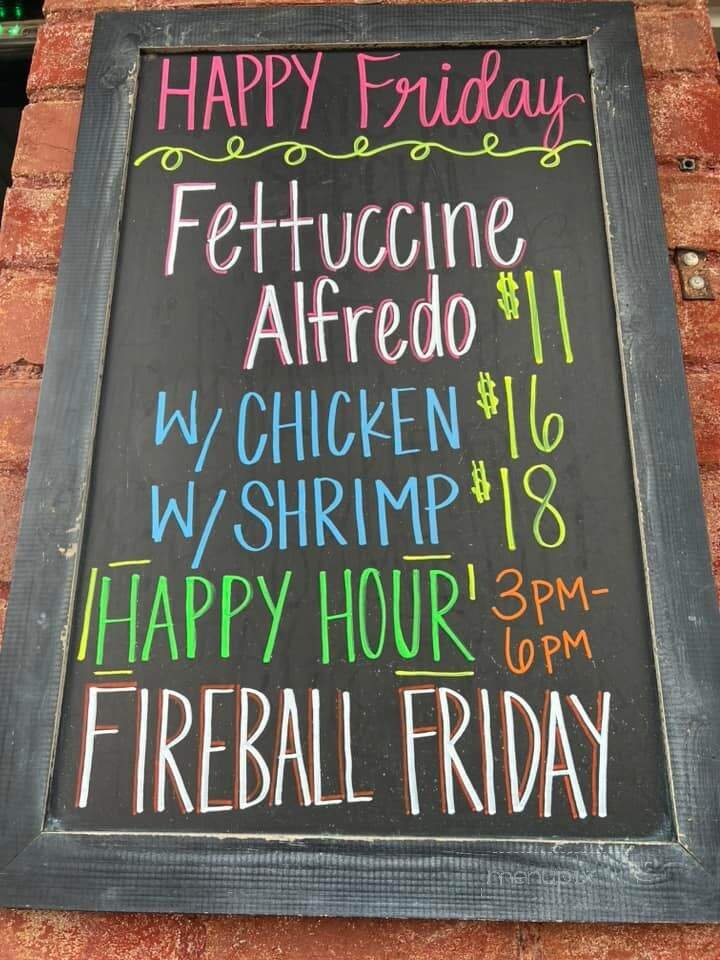 HAPPY Friday
Fettuccine
Alfredo $11
W/ CHICKEN $16
W/ SHRIMP $18
HAPPY HOUR 3PM-
6PM
FIREBALL FRIDAY
menupix